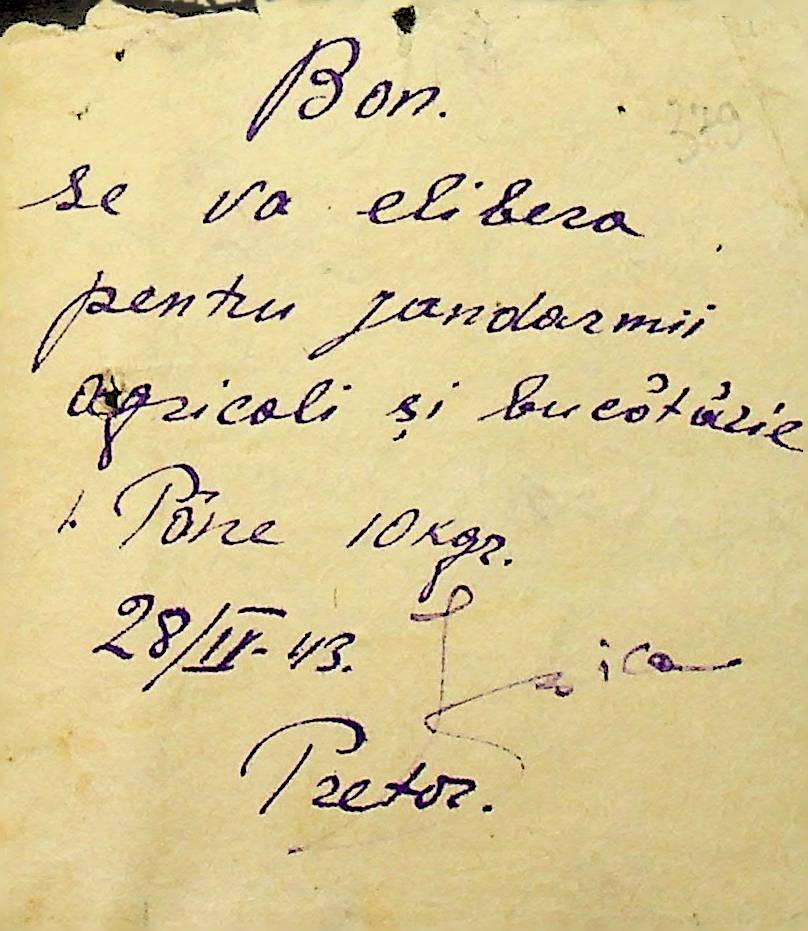 Bon.
379
se va elibera
pentru jandarmii
agricoli și bucătărie
1. Pâne 10 kgr.
28/IV-43.
Pretor.